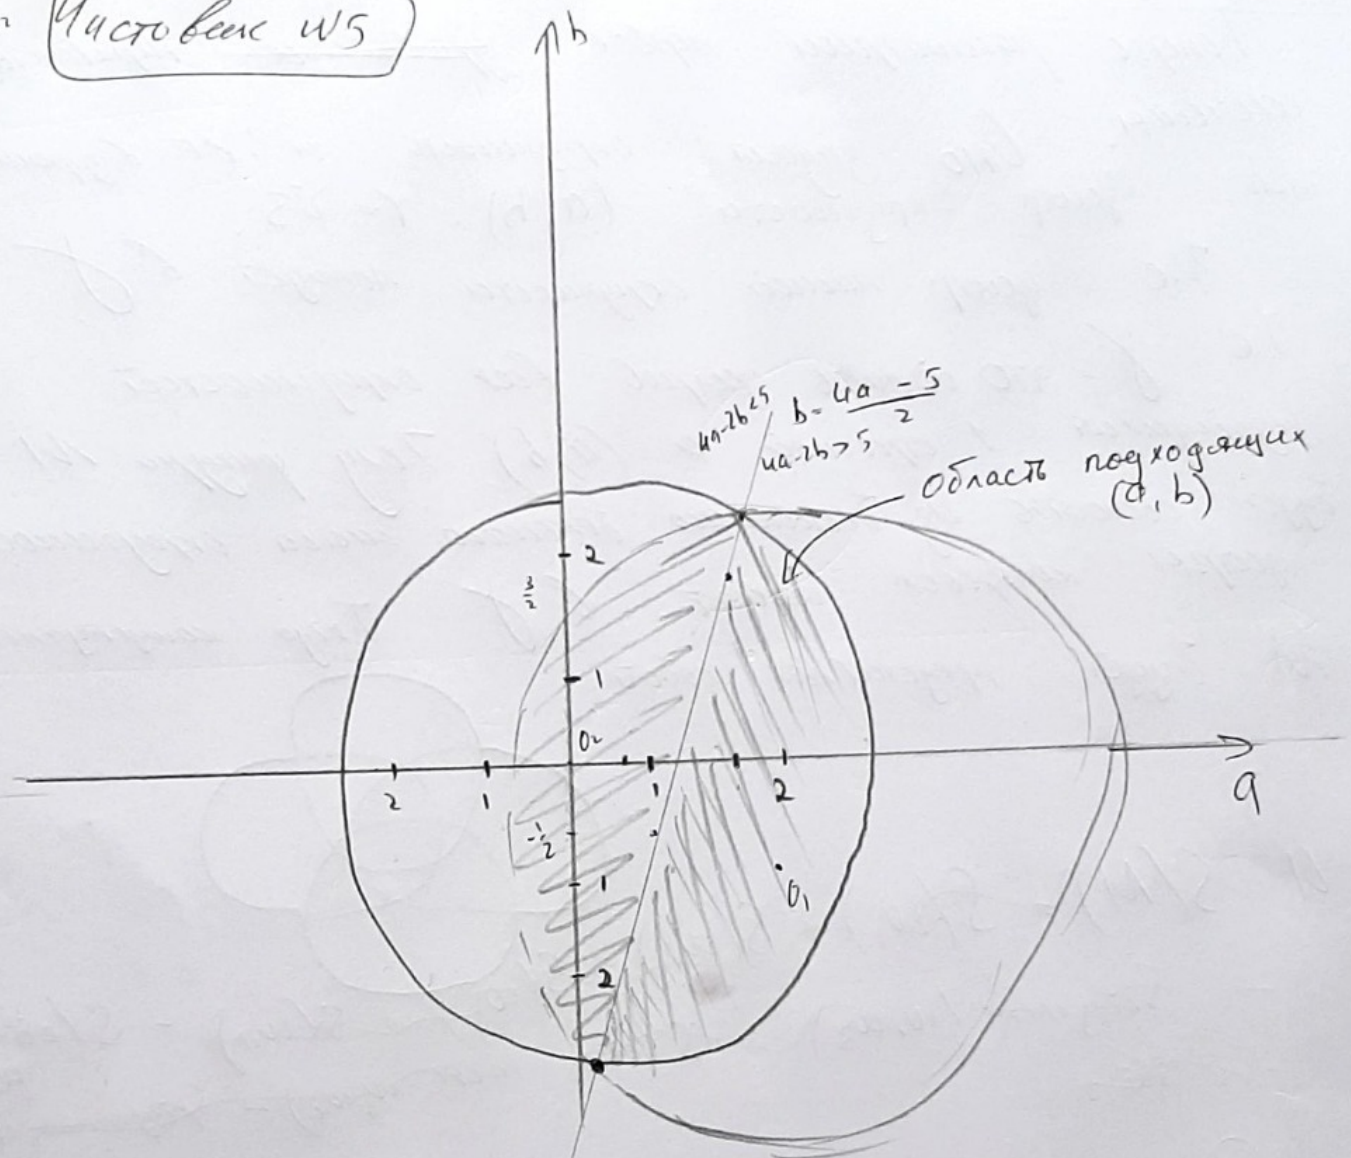 Чистовик №5
b
4a-2b<5
b= (4a - 5)/2
4a-2b>5
Область подходящих
(a, b)
2
3/2
1
O₂
2
1
1
2
a
-1/2
1
O₁
2